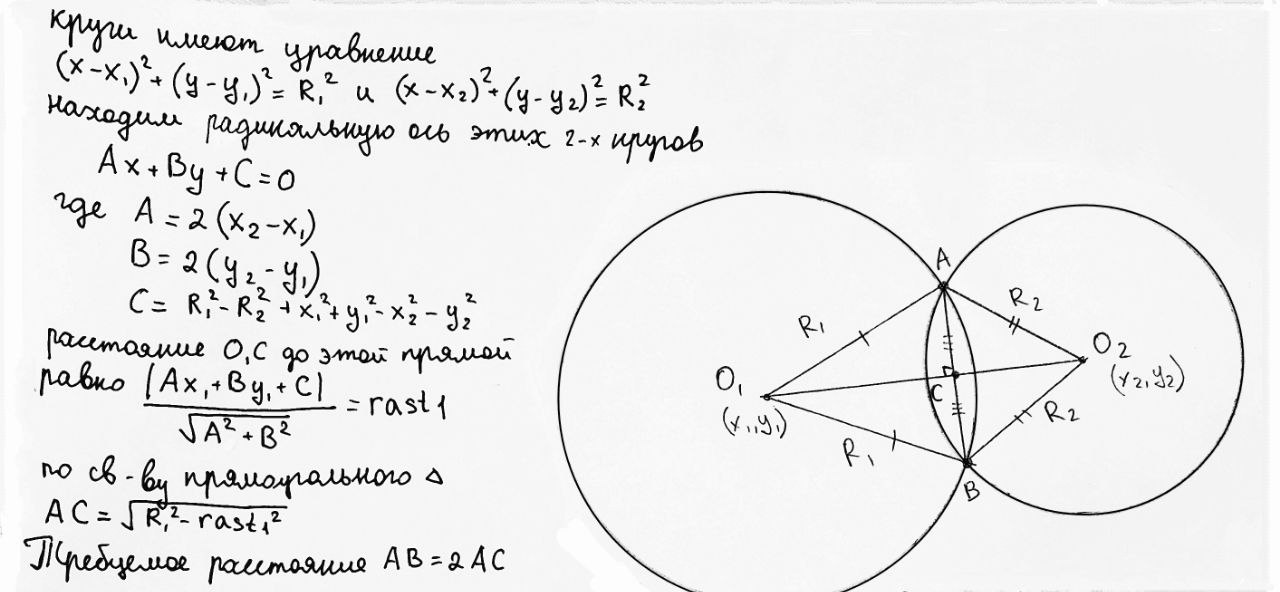 круги имеют уравнение
(x-x₁)²+(y-y₁)²=R₁² и (x-x₂)²+(y-y₂)²=R₂²
находим радикальную ось этих 2-х кругов
Ax+By+C=0
где A=2(x₂-x₁)
B=2(y₂-y₁)
C=R₁²-R₂²+x₁²+y₁²-x₂²-y₂²
расстояние O₁C до этой прямой
равно |Ax₁+By₁+C|/√(A²+B²) = rast1
по св-ву прямоугольного △
AC=√(R₁²-rast₁²)
Требуемое расстояние AB=2AC
A
R₁
R₂
O₁
(x₁,y₁)
C
O₂
(x₂,y₂)
R₁
R₂
B